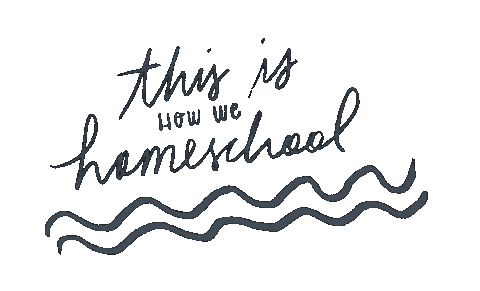 this is
HOW WE
homeschool